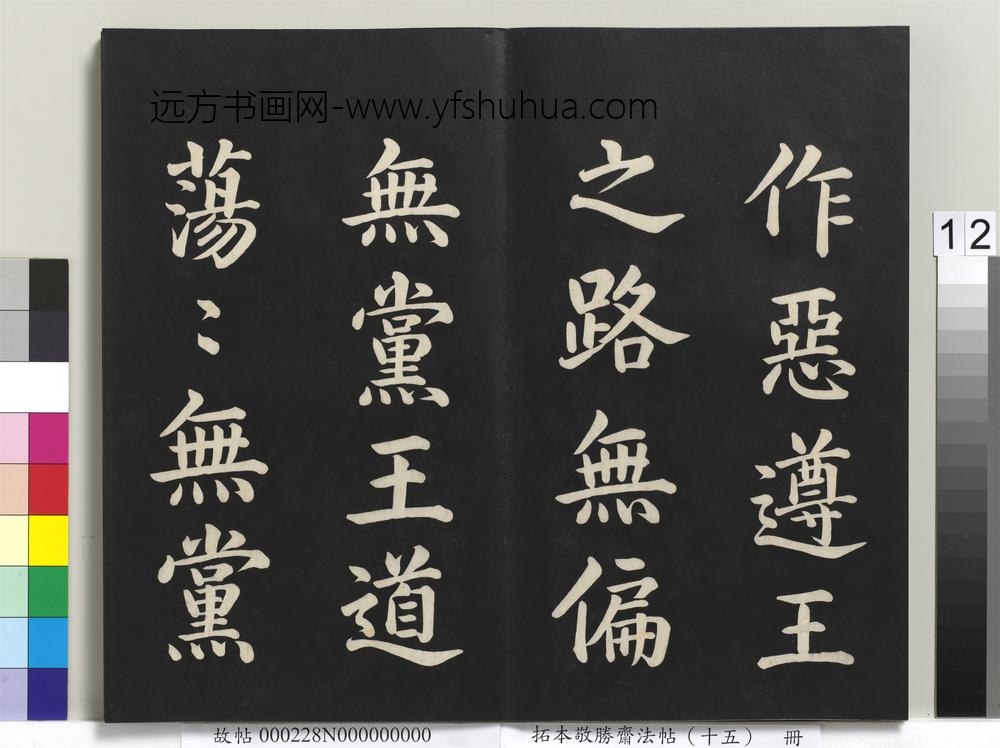 远方书画网-www.yfshuhua.com
作惡遵王
之路無偏
無黨王道
蕩〻無黨
12
故帖 000228N000000000
拓本敬勝齋法帖（十五） 冊